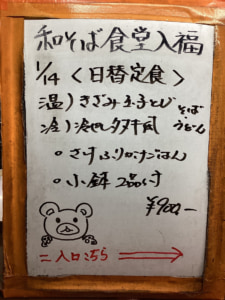 和そば食堂入福
1/14 <日替定食>
温)きざみ玉子とじ そば
冷)冷し タヌキ風 うどん
。さけふりかけごはん
。小鉢 2品付
¥900-
入口こちら